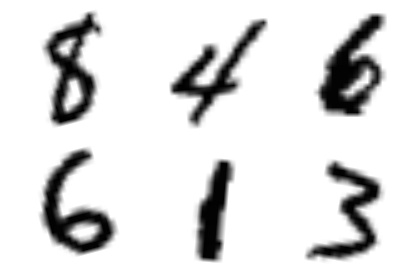 8 4 6
6 1 3